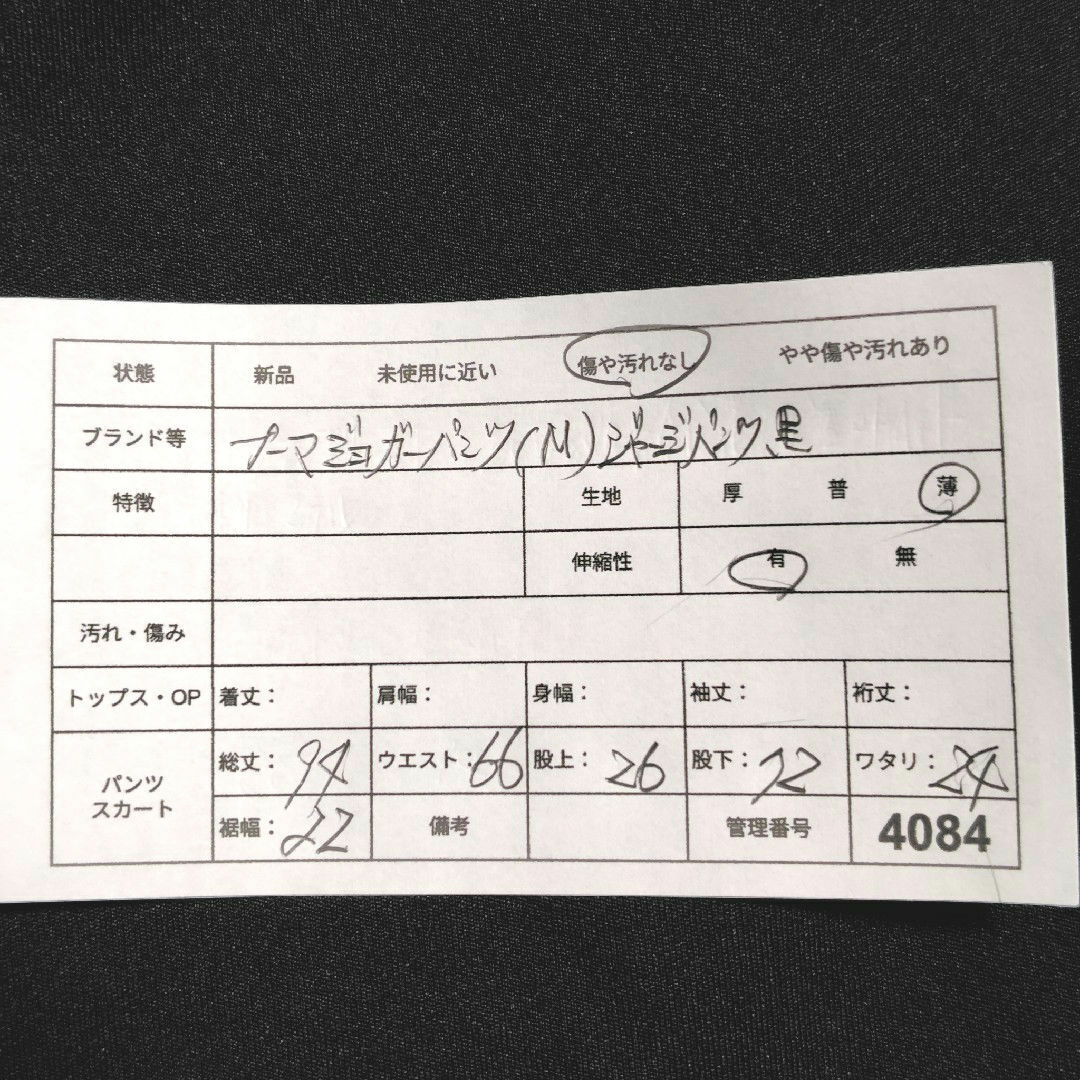 状態 新品 未使用に近い 傷や汚れなし やや傷や汚れあり
ブランド等 プーマジョガーパンツ(M)ジャージパンツ、黒
特徴 生地 厚 普 薄
伸縮性 有 無
汚れ・傷み
トップス・OP 着丈: 肩幅: 身幅: 袖丈: 裄丈:
パンツ スカート 総丈: 94 ウエスト: 66 股上: 26 股下: 72 ワタリ: 24
裾幅: 22 備考 管理番号 4084